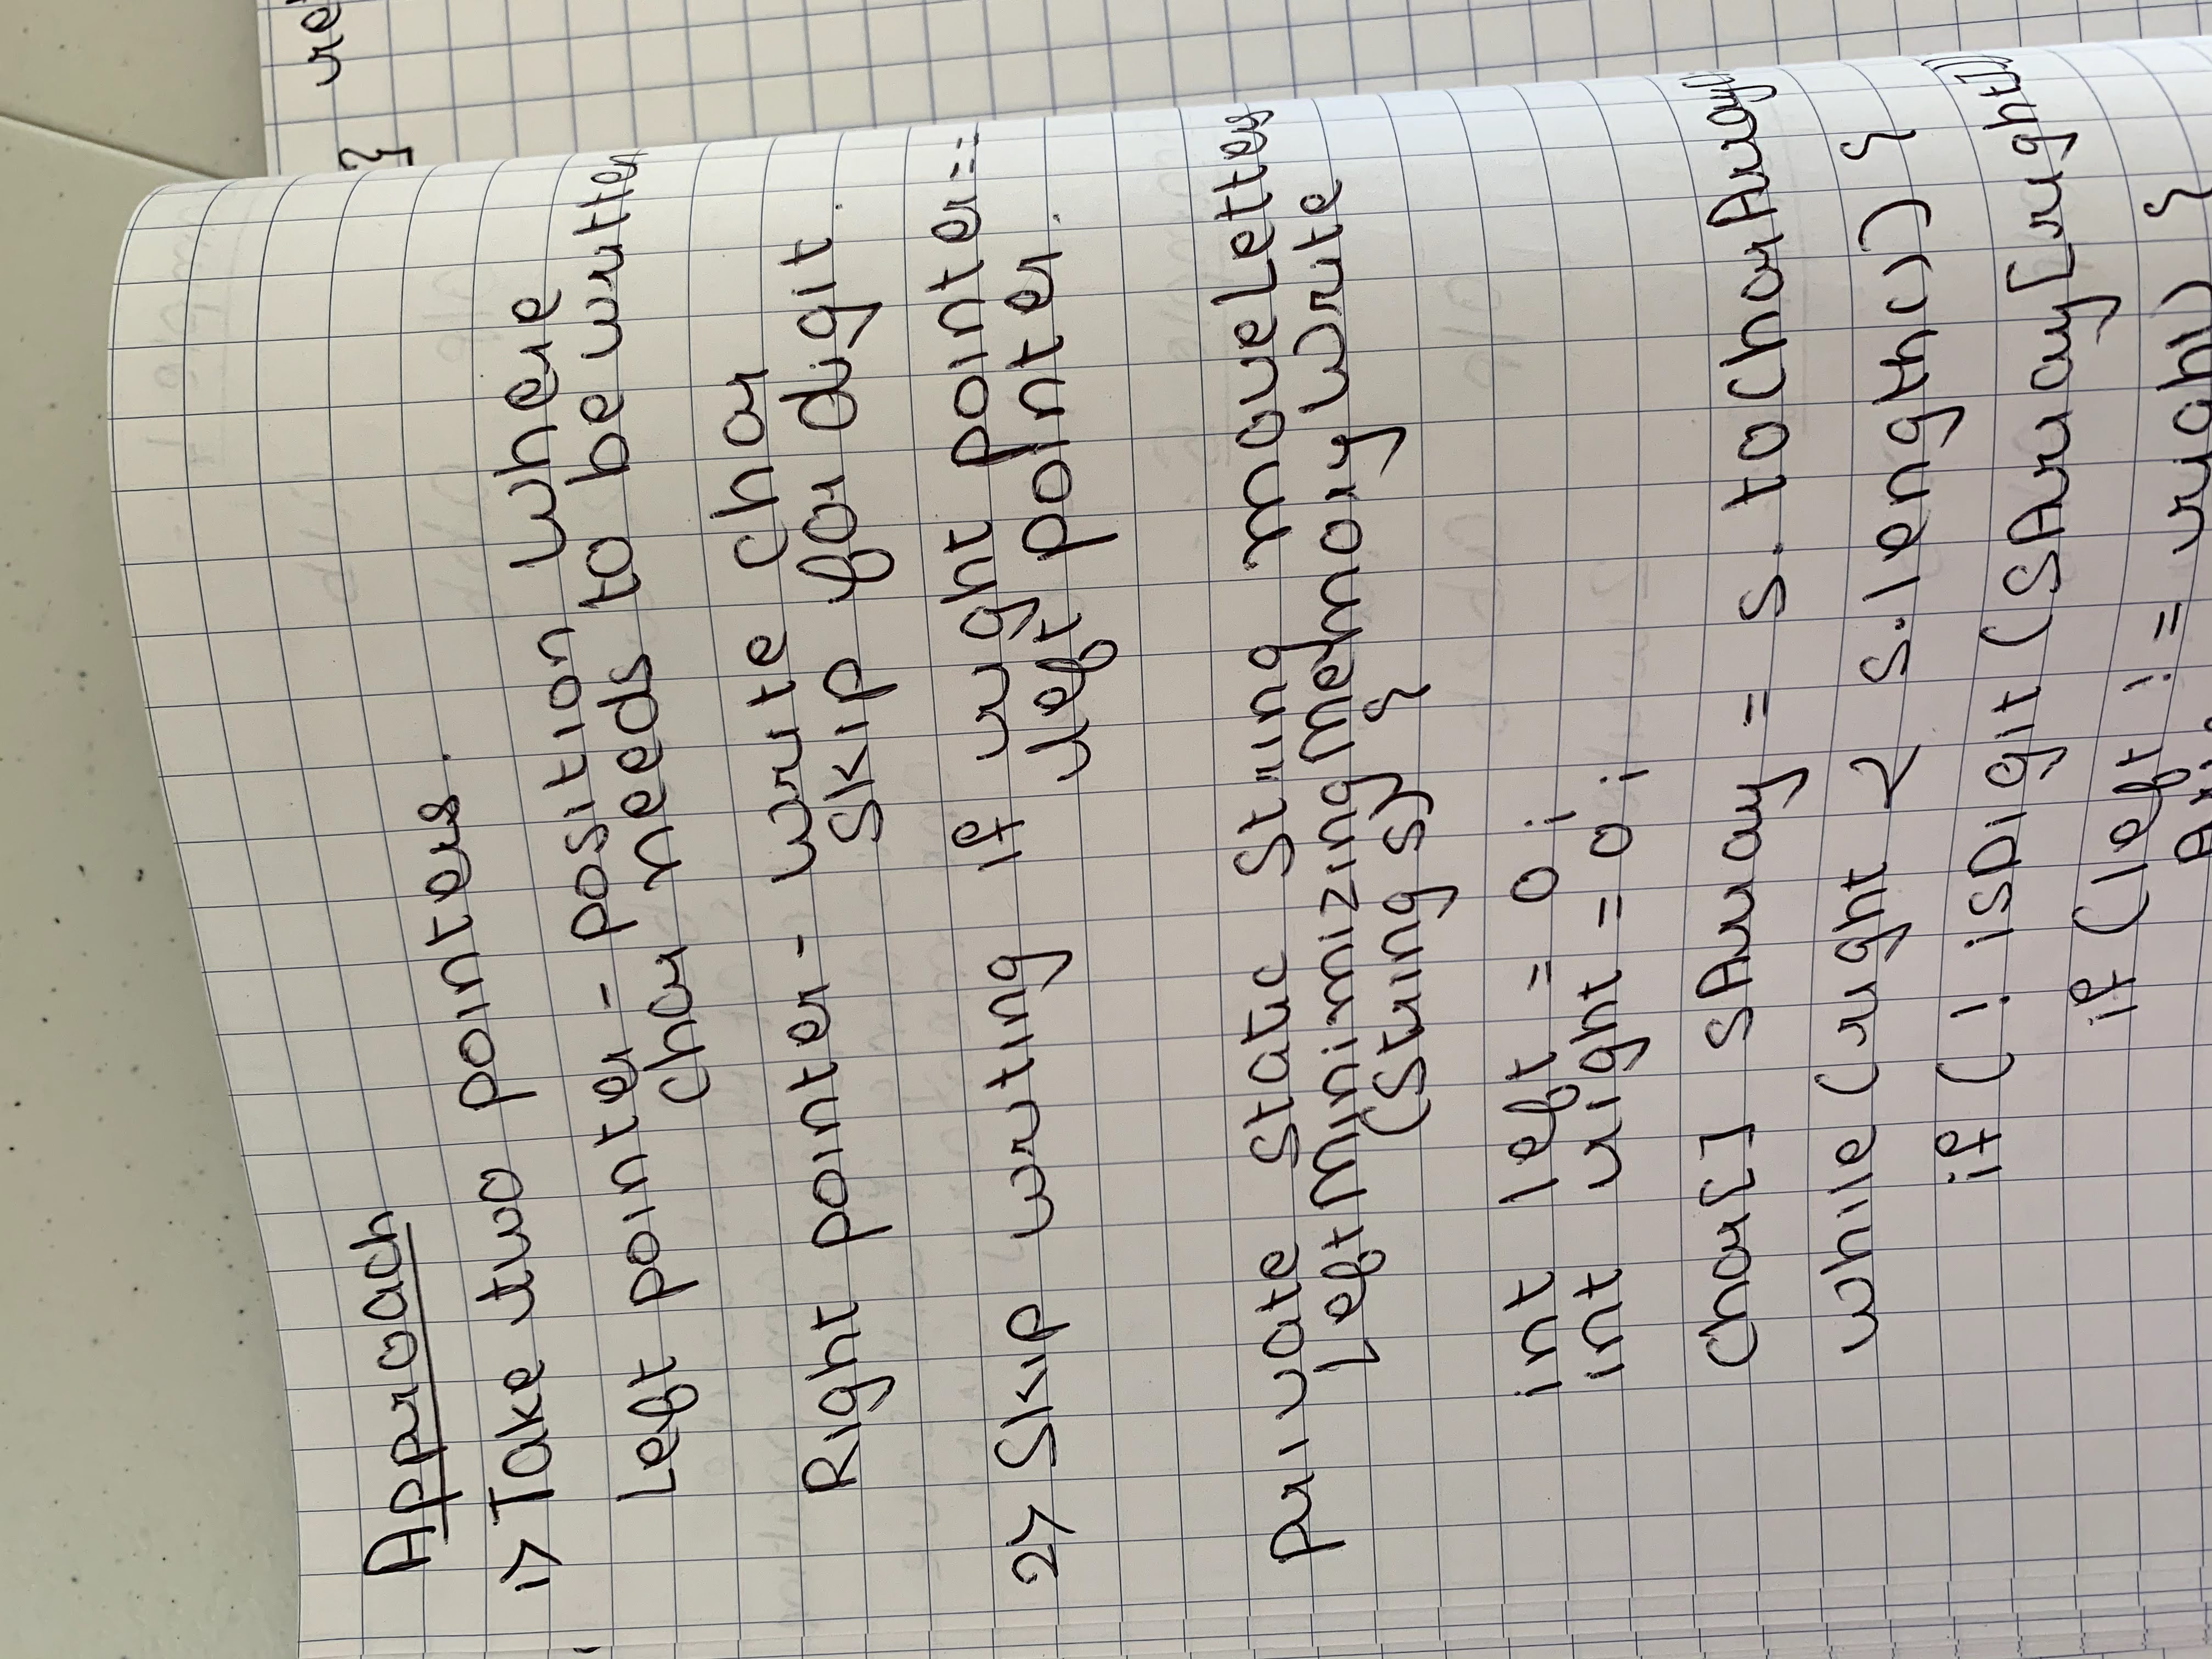 Approach
1> Take two pointers.
Left pointer - position where
char needs to be written
Right pointer - write char
skip for digit.
2> Skip writing if right pointer ==
left pointer.
private static String moveLetters
LeftMinimizingMemoryWrite
(String s) {
int left = 0;
int right = 0;
char[] sArray = s.toCharArray()
while (right < s.length()) {
if (! isDigit (sArray[right]))
if (left != right) {
}